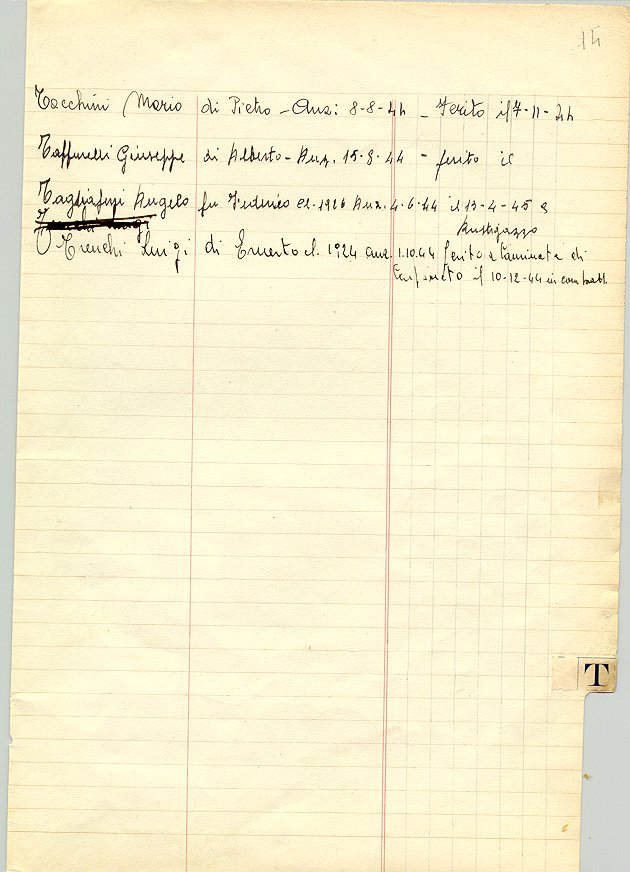 14
Tacchini Mario di Pietro - Anz: 8-8-44 - Ferito il 7-11-44
Taffurelli Giuseppe di Alberto - Anz. 15-8-44 - ferito il
Tagliaferri Angelo fu Federico cl. 1926 Anz. 4-6-44 il 13-4-45 a
Rustigazzo
Trenchi Luigi di Ernesto cl. 1924 anz. 1.10.44 ferito a Caminata di
il 10-12-44 in combatt.
T